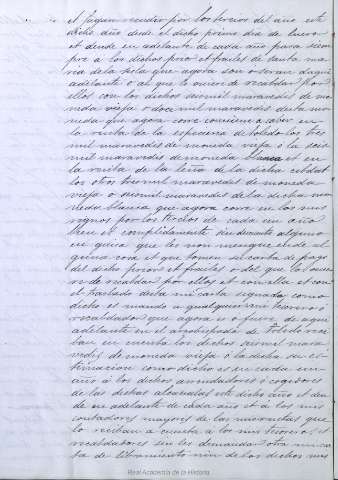 et fagan recudir por los tercios del año este
dicho año desde el dicho primo dia de Enero
et dende en adelante de cada año para siem
pre a los dichos prior et frailes de santa ma
ria de la sisla que agora son o seran daqui
adelante o al que lo oviere de recabdar por
ellos con los dichos seis mil maravedis de mo
neda vieja o doce mil maravedis desta mo
neda que agora corre conviene a saber en
la renta de la especieria de toledo los tres
mil maravedis de moneda vieja o los seis
mil maravedis de moneda blanca et en
la renta de la leña de la dicha cibdat
los otros tres mil maravedis de moneda
vieja o seis mil maravedis de la dicha mo
neda blanca que agora corre en los mis
regnos por los tercios de cada un año
bien et complidamente sin descuento alguno
en guisa que les non mengue ende al
guna cosa et que tomen su carta de pago
del dicho prior et frailes o del que lo ovie
re de recabdar por ellos et con ella et con
el traslado desta mi carta signado como
dicho es mando a qualquier mi tesorero o
recabdador que agora es o fuere de aqui
adelante en el arzobispado de Toledo re
ban en cuenta los dichos seis mil mara
vedis de moneda vieja o la dicha su es
timacion como dicho es en cada un
año a los dichos arrendadores o cogedores
de las dichas alcavalas este dicho año et den
de en adelante de cada año et a los mis
contadores mayores de las mis cuentas que
lo reciban a cuenta a los mis tesoreros et
recabdadores sin les demandar otra mi car
ta de libramiento nin de los dichos mis
Real Academia de la Historia